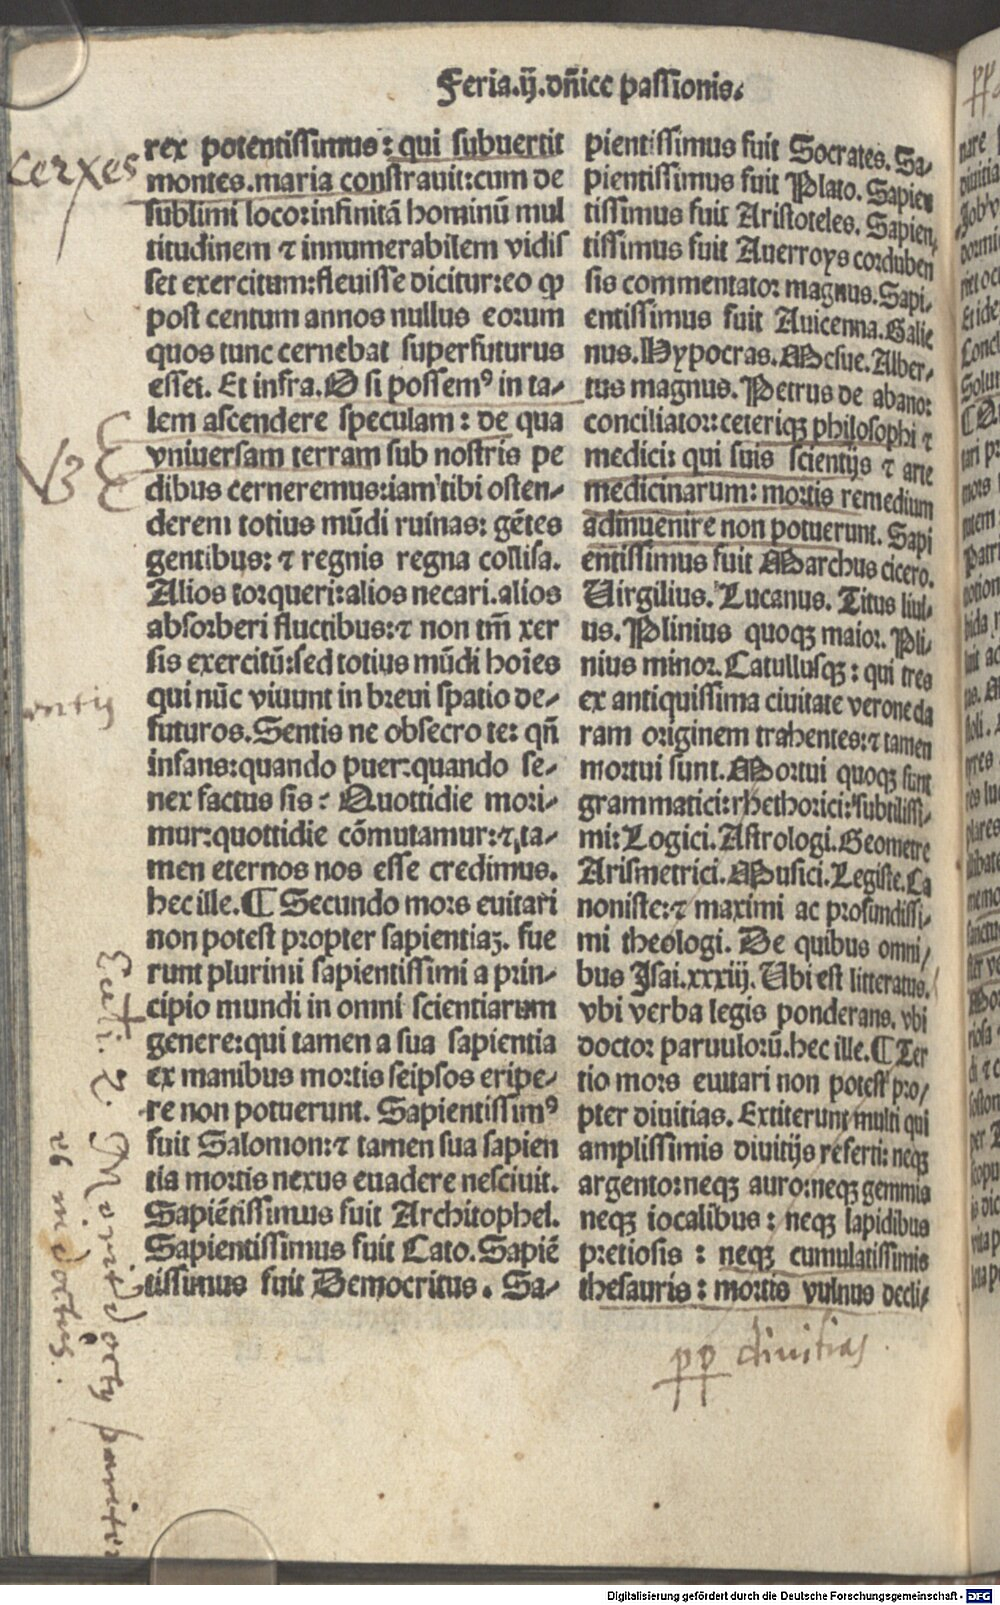 Feria.ij.dñice passionis.
rex potentissimus: qui subuertit
montes.maria constrauit:cum de
sublimi loco:infinitā hominū mul
titudinem ⁊ innumerabilem vidis
set exercitum:fleuisse dicitur:eo ꝙ
post centum annos nullus eorum
quos tunc cernebat superfuturus
esset. Et infra.O si possemꝰ in ta-
lem ascendere speculam: de qua
vniuersam terram sub nostris pe
dibus cerneremus:iam tibi osten-
derem totius mūdi ruinas: gētes
gentibus: ⁊ regnis regna collisa.
Alios torqueri:alios necari.alios
absorberi fluctibus:⁊ non tm̄ xer
sis exercitū:sed totius mūdi hoīes
qui nūc viuunt in breui spatio de-
futuros.Sentis ne obsecro te: qñ
infans:quando puer:quando se-
nex factus sis: Quottidie mori-
mur:quottidie cōmutamur:⁊ ta-
men eternos nos esse credimus.
hec ille.¶ Secundo mors euitari
non potest propter sapientiaꝫ. fue
runt plurimi sapientissimi a prin-
cipio mundi in omni scientiarum
genere:qui tamen a sua sapientia
ex manibus mortis seipsos eripe-
re non potuerunt. Sapientissimꝰ
fuit Salomon:⁊ tamen sua sapien
tia mortis nexus euadere nesciuit.
Sapiētissimus fuit Architophel.
Sapientissimus fuit Cato.Sapiē
tissimus fuit Democritus. Sa-
pientissimus fuit Socrates. Sa-
pientissimus fuit Plato. Sapien
tissimus fuit Aristoteles. Sapien-
tissimus fuit Auerroys corduben
sis commentator magnus.Sapi-
entissimus fuit Auicenna.Galie
nus.Hypocras.Mesue.Alber-
tus magnus.Petrus de abano:
conciliator:ceteriqꝫ philosophi ⁊
medici: qui suis scientijs ⁊ arte
medicinarum: mortis remedium
adinuenire non potuerunt. Sapi
entissimus fuit Marchus cicero.
Uirgilius. Lucanus. Titus liui-
us. Plinius quoqꝫ maior. Pli-
nius minor.Catullusqꝫ: qui tres
ex antiquissima ciuitate verone da
ram originem trahentes:⁊ tamen
mortui sunt.Mortui quoqꝫ sunt
grammatici:rhethorici:subtilissi-
mi:Logici.Astrologi.Geometre
Arismetrici.Musici.Legiste.Ca
noniste:⁊ maximi ac profundissi-
mi theologi. De quibus omni-
bus Isai.xxxiij.Ubi est litteratus.
vbi verba legis ponderans. vbi
doctor paruulorū.hec ille.¶ Ter
tio mors euitari non potest pro-
pter diuitias. Extiterunt multi qui
amplissimis diuitijs referti: neqꝫ
argento:neqꝫ auro:neqꝫ gemmis
neqꝫ iocalibus: neqꝫ lapidibus
pretiosis: neqꝫ cumulatissimis
thesauris: mortis vulnus decli-
cerxes
Eccti. 2. Moritur
indoctus.
pp divitias
Digitalisierung gefördert durch die Deutsche Forschungsgemeinschaft - DFG